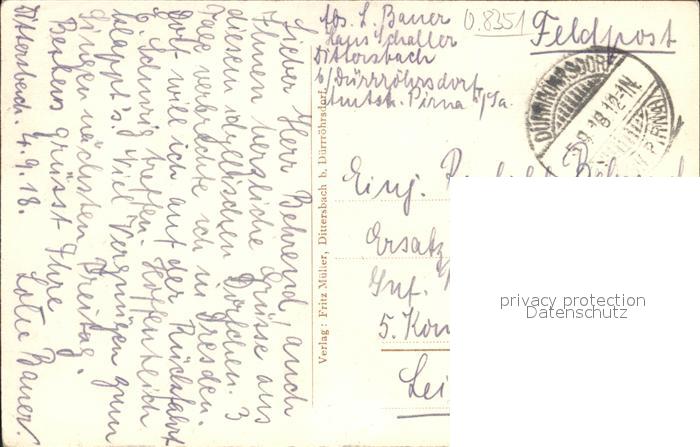 Lieber Herr Behrend, auch
Ihnen herzliche Grüsse aus
diesem idyllischen Dörfchen. 3
Tage verbrachte ich in Dresden.
Dort will ich auf der Rückfahrt
treffen. Hoffentlich
klappt's. Viel Vergnügen zum
Singen nächsten Freitag.
Bestens grüsst Ihre
Dittersbach. 4.9.18. Lotte Bauer.
Verlag: Fritz Müller, Dittersbach b. Dürrröhrsdorf.
Abs. L. Bauer
Haus Schaller
Dittersbach
b/Dürrröhrsdorf
Amtsh. Pirna i/Sa.
0.8351
Feldpost
DÜRRRÖHRSDORF
5.9.18.12-1N
Einj.
Ersatz
Inf.
5. Kom
Lei
privacy protection
Datenschutz